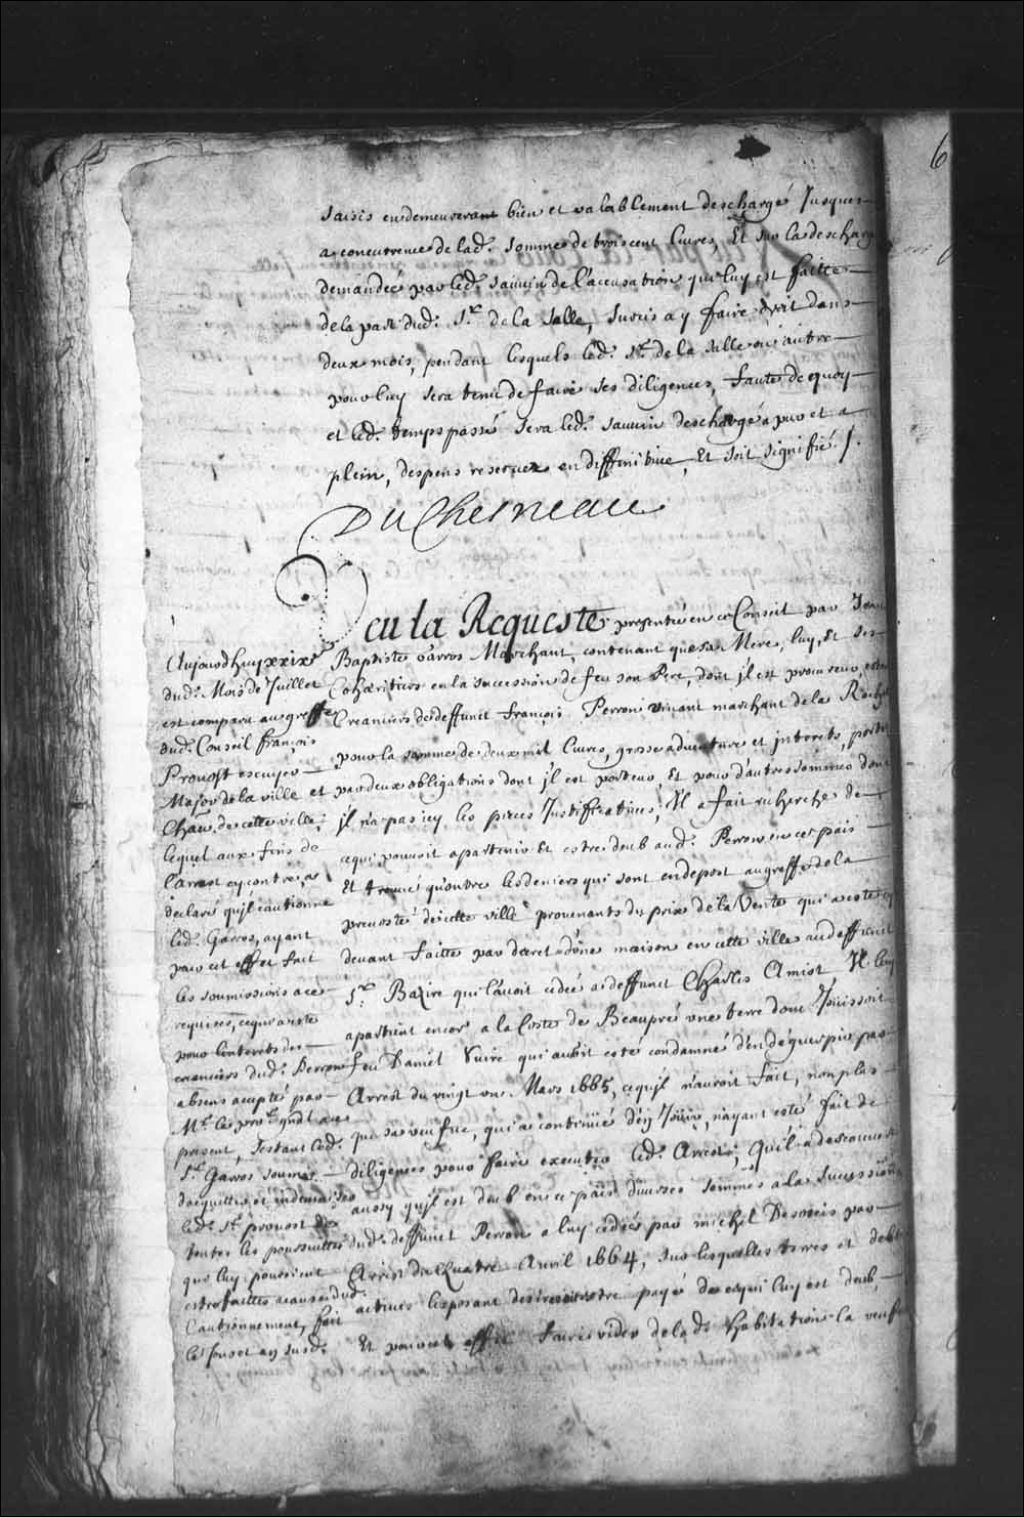 6
saisis en demeureront bien et valablement deschargé Jusques
a concurrence de lad. somme de trois cent livres, Et sur la descharge
demandée par led. saurin de l'accusation qui luy est faitte
de la part dud. Sr. de la Salle, sursis a y faire droit dans
deux mois, pendant lesquels led. Sr. de la Salle ou autre
pour luy sera tenu de faire ses diligences, faute de quoy
et led. temps passé sera led. saurin deschargé a pur et a
plein, despens reservez en diffinitive, Et soit signifié /.
DuChesneau
Veu la Requeste presentée en ce Conseil par Jean
Baptiste Garros Marchant, contenant que sa Mere, luy, Et ses
Cohæritiers en la succession de feu son Pere, dont jl est procureur, estant
Creanciers de deffunct françois Perron vivant marchant de la Rochelle
pour la somme de deux mil livres, grosse adventure et jnterets, portée
et par deux obligations dont jl est porteur Et pour d'autres sommes dont
jl n'a pas icy les pieces Justificatives, Il a fait recherche de
ce qui pouvoit apartenir Et estre deub aud. Perron en ces païs
Et trouvé qu'outre les deniers qui sont en depost au greffe de la
prevosté de cette ville provenants du prix de la Vente qui a esté cy
devant faitte par decret d'une maison en cette ville aud deffunct
Sr. Bazire qui l'avoit cedée a deffunct Charles Amiot Il luy
apartient encor a la Coste de Beaupré une terre dont Jouissoit
feu Daniel Suire qui auroit esté condamné d'en déguerpir par
Arrest du vingt un Mars 1665, ce qu'jl n'auroit fait, non plus
que sa veufve, qui a continué d'en Jouir, n'ayant esté fait de
diligences pour faire executer led. Arrest, Qu'il a descouvert
aussy qu'jl est deub en ce païs diverses sommes a la succession
dud. deffunct Perron a luy cedées par michel Desorcis par
Arrest du Quatre Avril 1664, sur lesquelles terres et debtes
actives l'exposant desireroit estre payé de ce qui luy est deub,
Et pour cet effet faire vider de lad. habitation la veufve
Aujourd'huy xxixe
dud. Mois de Juillet
est comparu au greffe
dud. Conseil françois
Provost escuyer
Major de la ville et
Chau. de cette ville,
lequel aux fins de
l'arrest cy contre, a
declaré qu'jl cautionne
led. Garros, ayant
pour cet effet fait
les soumissions a ce
requises, ce qui a esté
pour l'interets des
creanciers dud. Perron
absens accepté par
Mr. le procr. gnāl au
present, Et estant led.
Sr. Garros soumis
d'acquitter et indemniser
led. Sr. provost de
toutes les poursuittes
que luy pourroient
estre faittes a cause dud.
Cautionnement, fait
les jour et an susd.